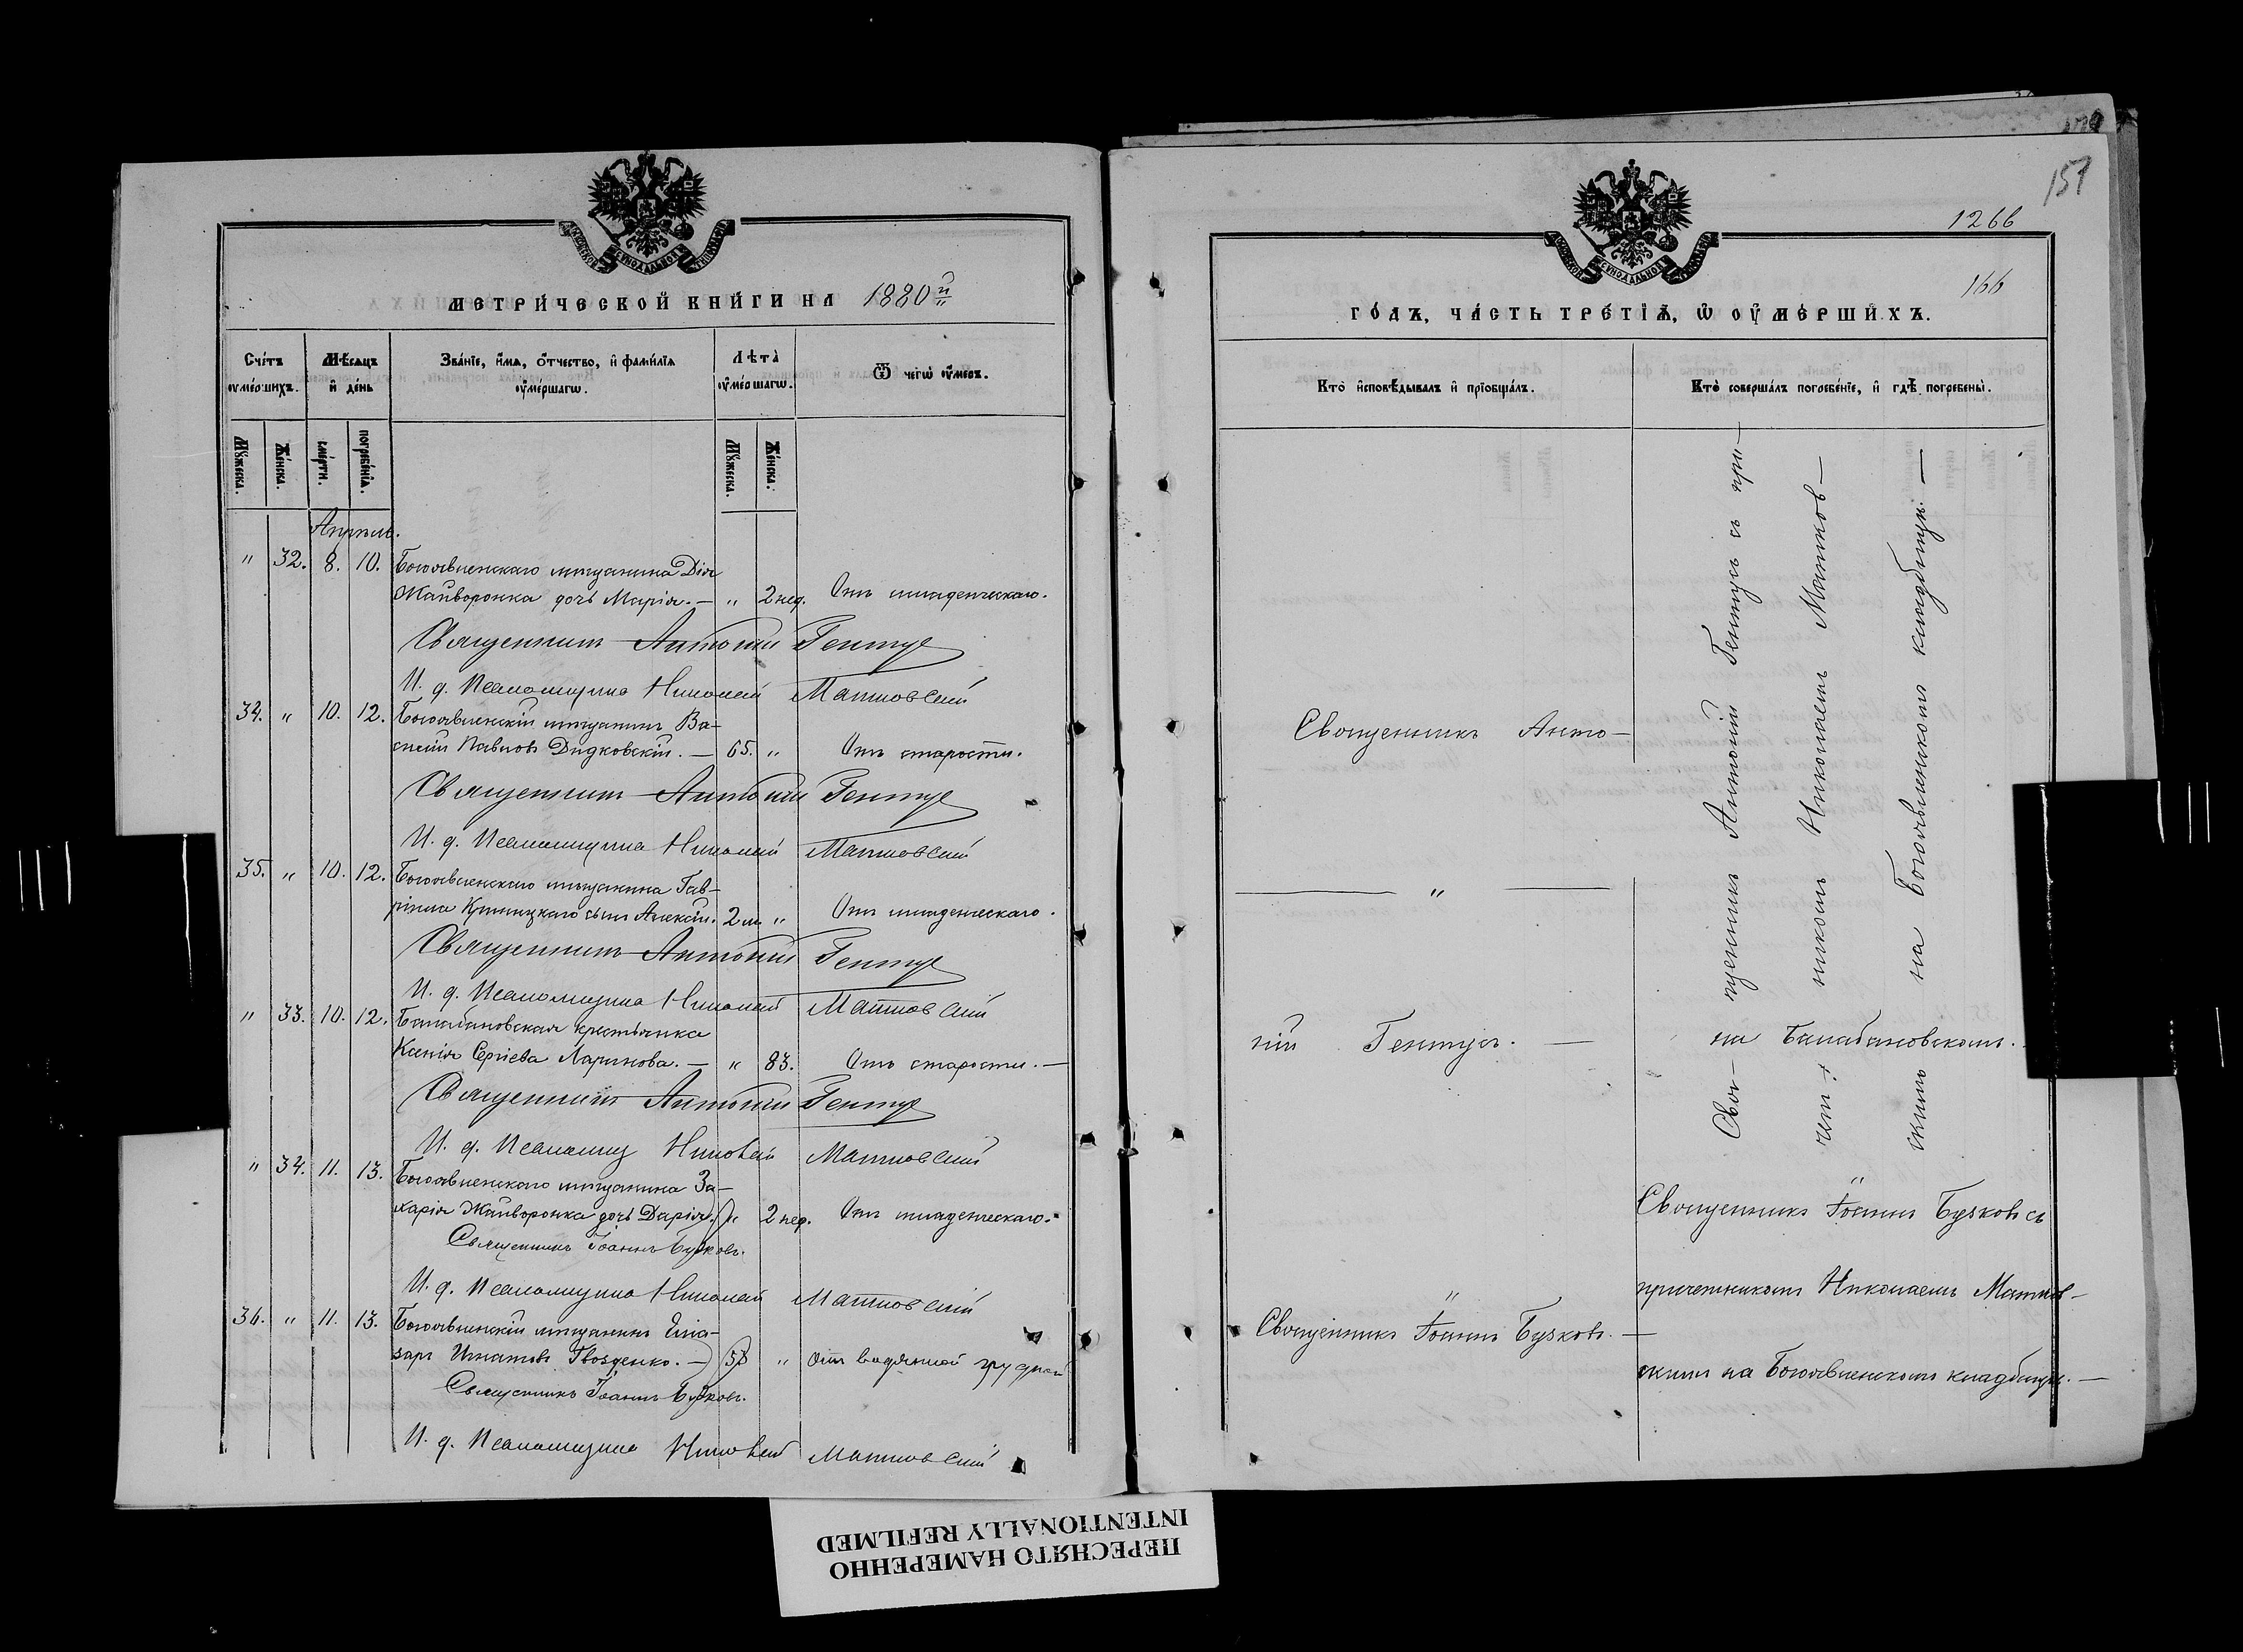 МЕТРИ́ЧЕСКОЙ КНИ́ГИ НА 1880й
Счётъ оумершихъ.
Мѣсяцъ и день
Званіе, имя, отчество, и фамилія оумершагѡ.
Лѣта оумершагѡ.
Ѿ чегѡ оумеръ.
Мужеска.
Женска.
смерти.
погребенія.
Мужеска.
Женска.
Апрѣль.
" 32. 8. 10. Богоявленскаго мѣщанина
Жайворонка дочь Марія. — " 2 нед. Отъ младенческаго.
Священникъ Антоній Гентуе
И. д. Псаломщика Николай Матковскій
34. " 10. 12. Богоявленскій мѣщанинъ Ва-
силій Павловъ Дидковскій. — 65. " Отъ старости.
Священникъ Антоній Гентуе
И. д. Псаломщика Николай Матковскій
35. " 10. 12. Богоявленскаго мѣщанина Гав-
ріила Криницкаго сынъ Алексій. 2 м. " Отъ младенческаго.
Священникъ Антоній Гентуе
И. д. Псаломщика Николай Матковскій
" 33. 10. 12. Балабановская крестьянка
Ксенія Сергіева Ларинова. — " 83. Отъ старости. —
Священникъ Антоній Гентуе
И. д. Псаломщ Николай Матковскій
" 34. 11. 13. Богоявленскаго мѣщанина За-
харія Жайворонка дочь Дарія. " 2 нед. Отъ младенческаго.
Священникъ Іоаннъ Бучковъ.
И. д. Псаломщика Николай Матковскій
36. " 11. 13. Богоявленскій мѣщанинъ Елеа-
заръ Игнатовъ Гвозденко. — " Отъ водяной грудной
Священникъ Іоаннъ Бучковъ.
И. д. Псаломщика Николай Матковскій
157
1266
166
ГОДЪ, ЧАСТЬ ТРЕТІЯ, Ѡ ОУМЕРШИХЪ.
Кто исповѣдывалъ и пріобщалъ.
Кто совершалъ погребеніе, и гдѣ погребены.
Священникъ Анто-
"
ній Гентусъ. —
"
Священникъ Іоаннъ Бучковъ. —
Свя- щенникъ Антоній Гентусъ съ при-
чет- никомъ Николаемъ Матков-
скимъ на Богоявленскомъ кладбищѣ. —
на Балабановскомъ.
"
Священникъ Іоаннъ Бучковъ съ
причетникомъ Николаемъ Матков-
скимъ на Богоявленскомъ кладбищѣ. —
ПЕРЕСНЯТО НАМЕРЕННО
INTENTIONALLY REFILMED